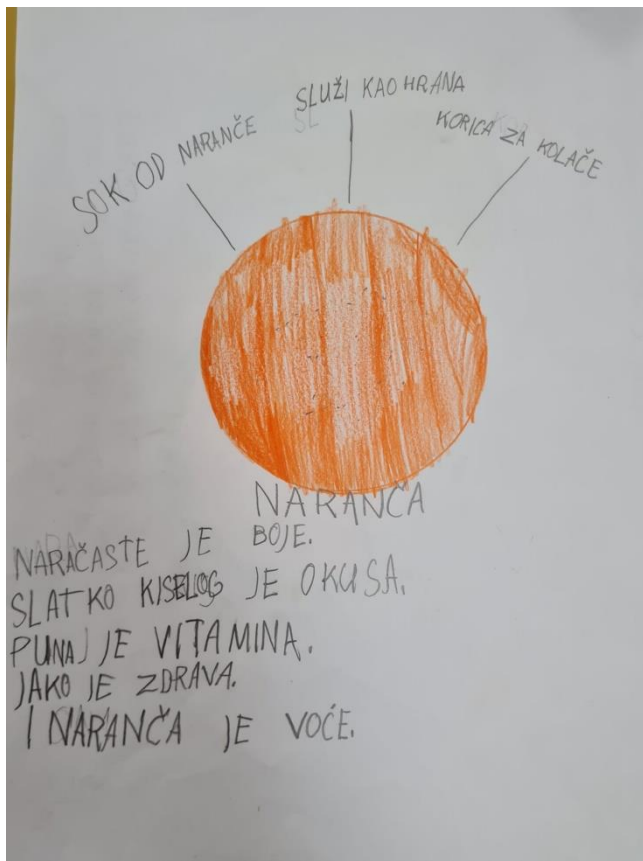 SLUŽI KAO HRANA
SOK OD NARANČE
KORICA ZA KOLAČE
NARANČA
NARAČASTE JE BOJE.
SLATKO KISELOG JE OKUSA.
PUNA JE VITAMINA.
JAKO JE ZDRAVA.
I NARANČA JE VOĆE.